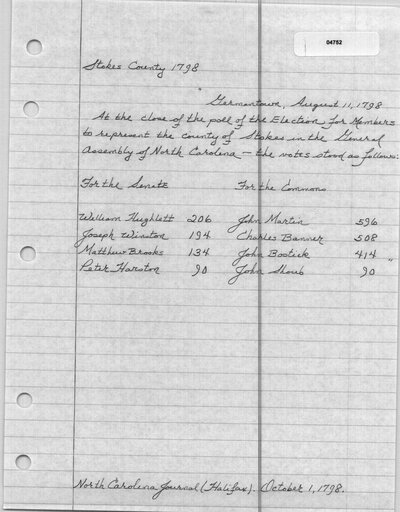 04752
Stokes County 1798
Germantown, August 11, 1798
At the close of the poll of the Election for Members
to represent the county of Stokes in the General
Assembly of North Carolina — the votes stood as follows:
For the Senate For the Commons
William Hughlett 206 John Martin 596
Joseph Winston 194 Charles Banner 508
Matthew Brooks 134 John Bostick 414 "
Peter Hairston 90 John Shoub 90
North Carolina Journal (Halifax). October 1, 1798.